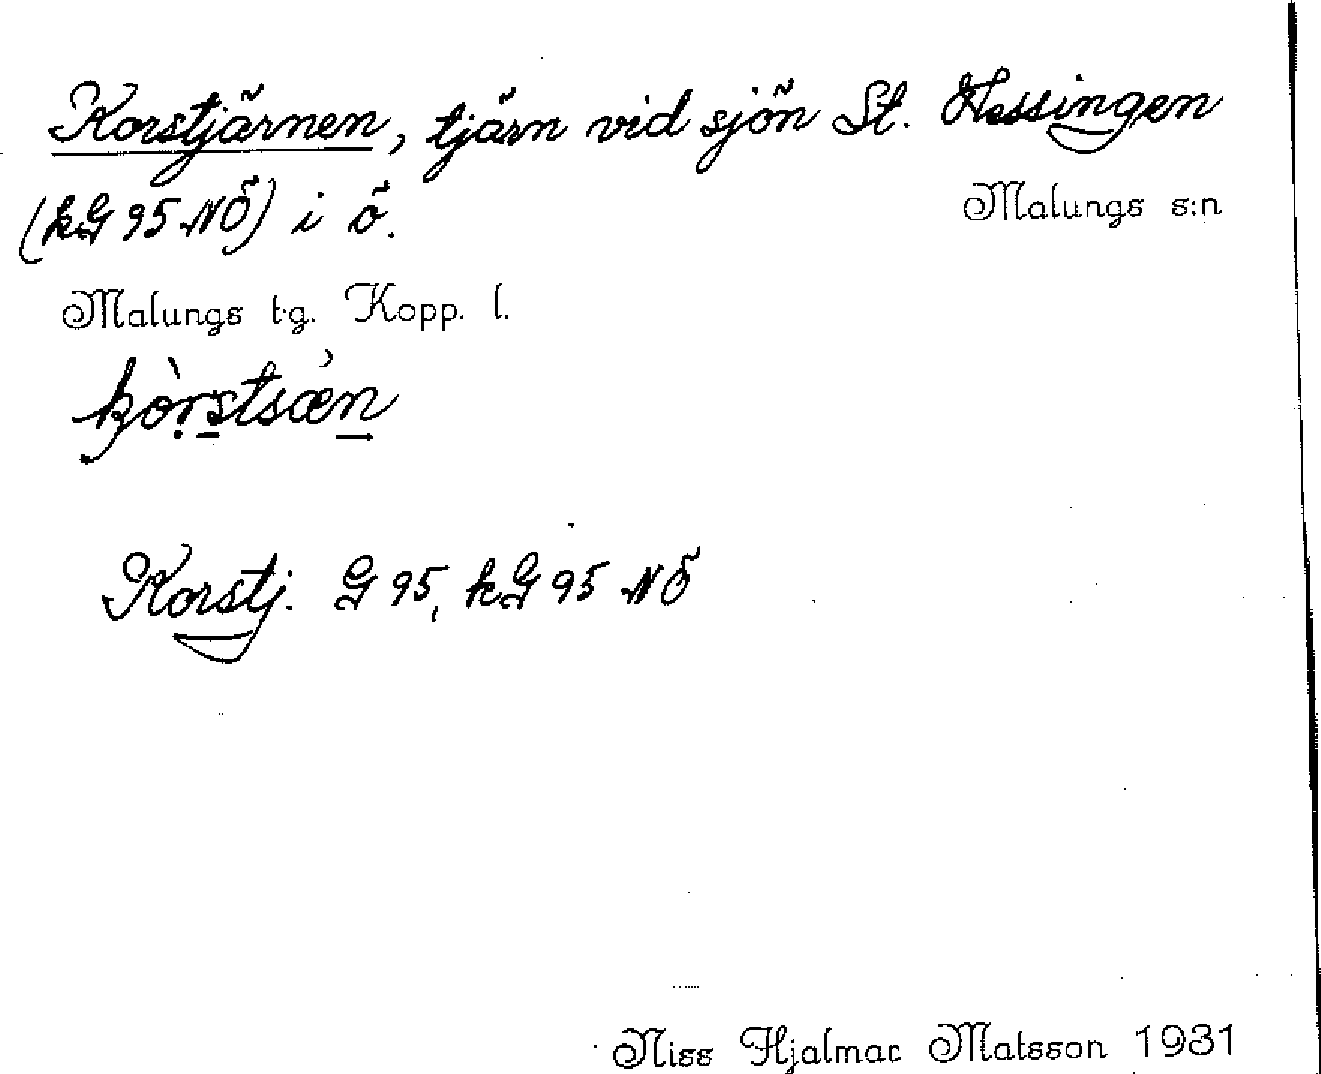 Korstjärnen, tjärn vid sjön St. Hessingen
Malungs s:n
(kG 95 NÖ) i ö.
Malungs tg. Kopp. l.
kòrstsæ̀n
Korstj. G 95, kG 95 NÖ
Niss Hjalmar Matsson 1931